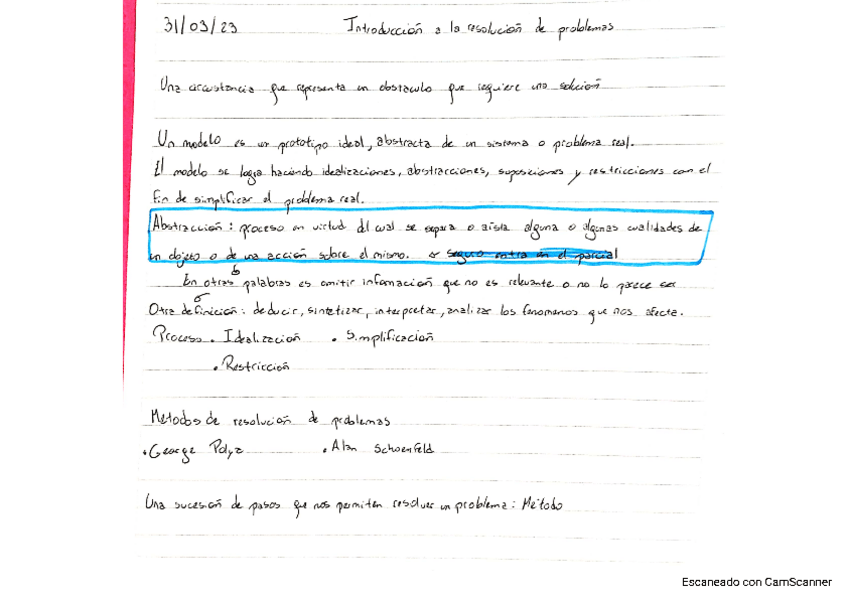 31/03/23 Introducción a la resolución de problemas
Una circustancia que representa un obstaculo que requiere una solución
Un modelo es un prototipo ideal, abstracta de un sistema o problema real.
El modelo se logra haciendo idealizaciones, abstracciones, suposiciones y restricciones con el
fin de simplificar el problema real.
Abstracción: proceso en virtud del cual se separa o aisla alguna o algunas cualidades de
un objeto o de una acción sobre el mismo. seguro entra en el parcial
En otras palabras es omitir información que no es relevante o no lo parece ser
Otra definición: deducir, sintetizar, interpretar, analizar los fenomenos que nos afecta.
Proceso • Idealización • Simplificación
• Restricción
Metodos de resolución de problemas
• George Polya • Alan Schoenfeld
Una sucesión de pasos que nos permiten resolver un problema: Método
Escaneado con CamScanner